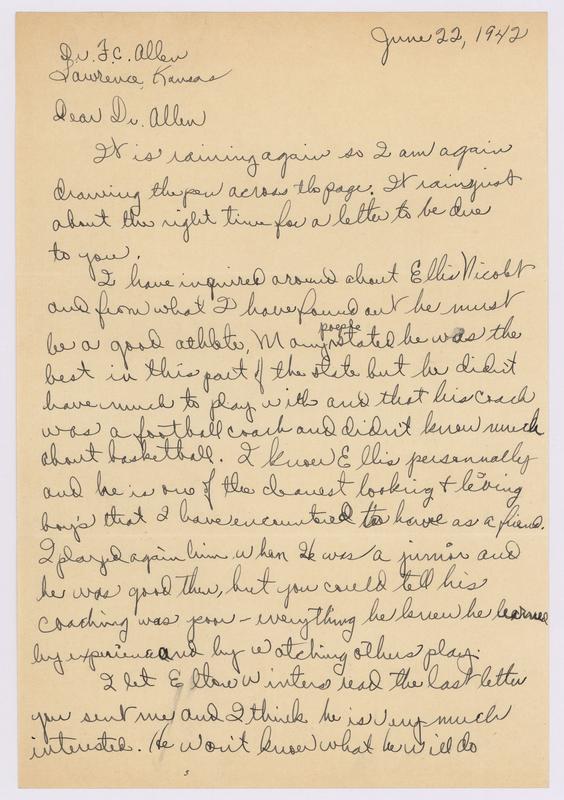 June 22, 1942
Dr. F.C. Allen
Lawrence, Kansas
Dear Dr. Allen
It is raining again so I am again
drawing the pen across the page. It rains just
about the right time for a letter to be due
to you.
I have inquired around about Ellis
and from what I have found out he must
be a good athlete, Many people stated he was the
best in this part of the state but he didn't
have much to play with and that his coach
was a football coach and didn't know much
about basketball. I know Ellis personally
and he is one of the cleanest looking + leving
boys that I have encountered to have as a friend.
I played again him when he was a junior and
he was good then, but you could tell his
coaching was poor - everything he knew he learned
by experience and by watching others play.
I let Elton Winters read the last letter
you sent me and I think he is very much
interested. He won't know what he will do